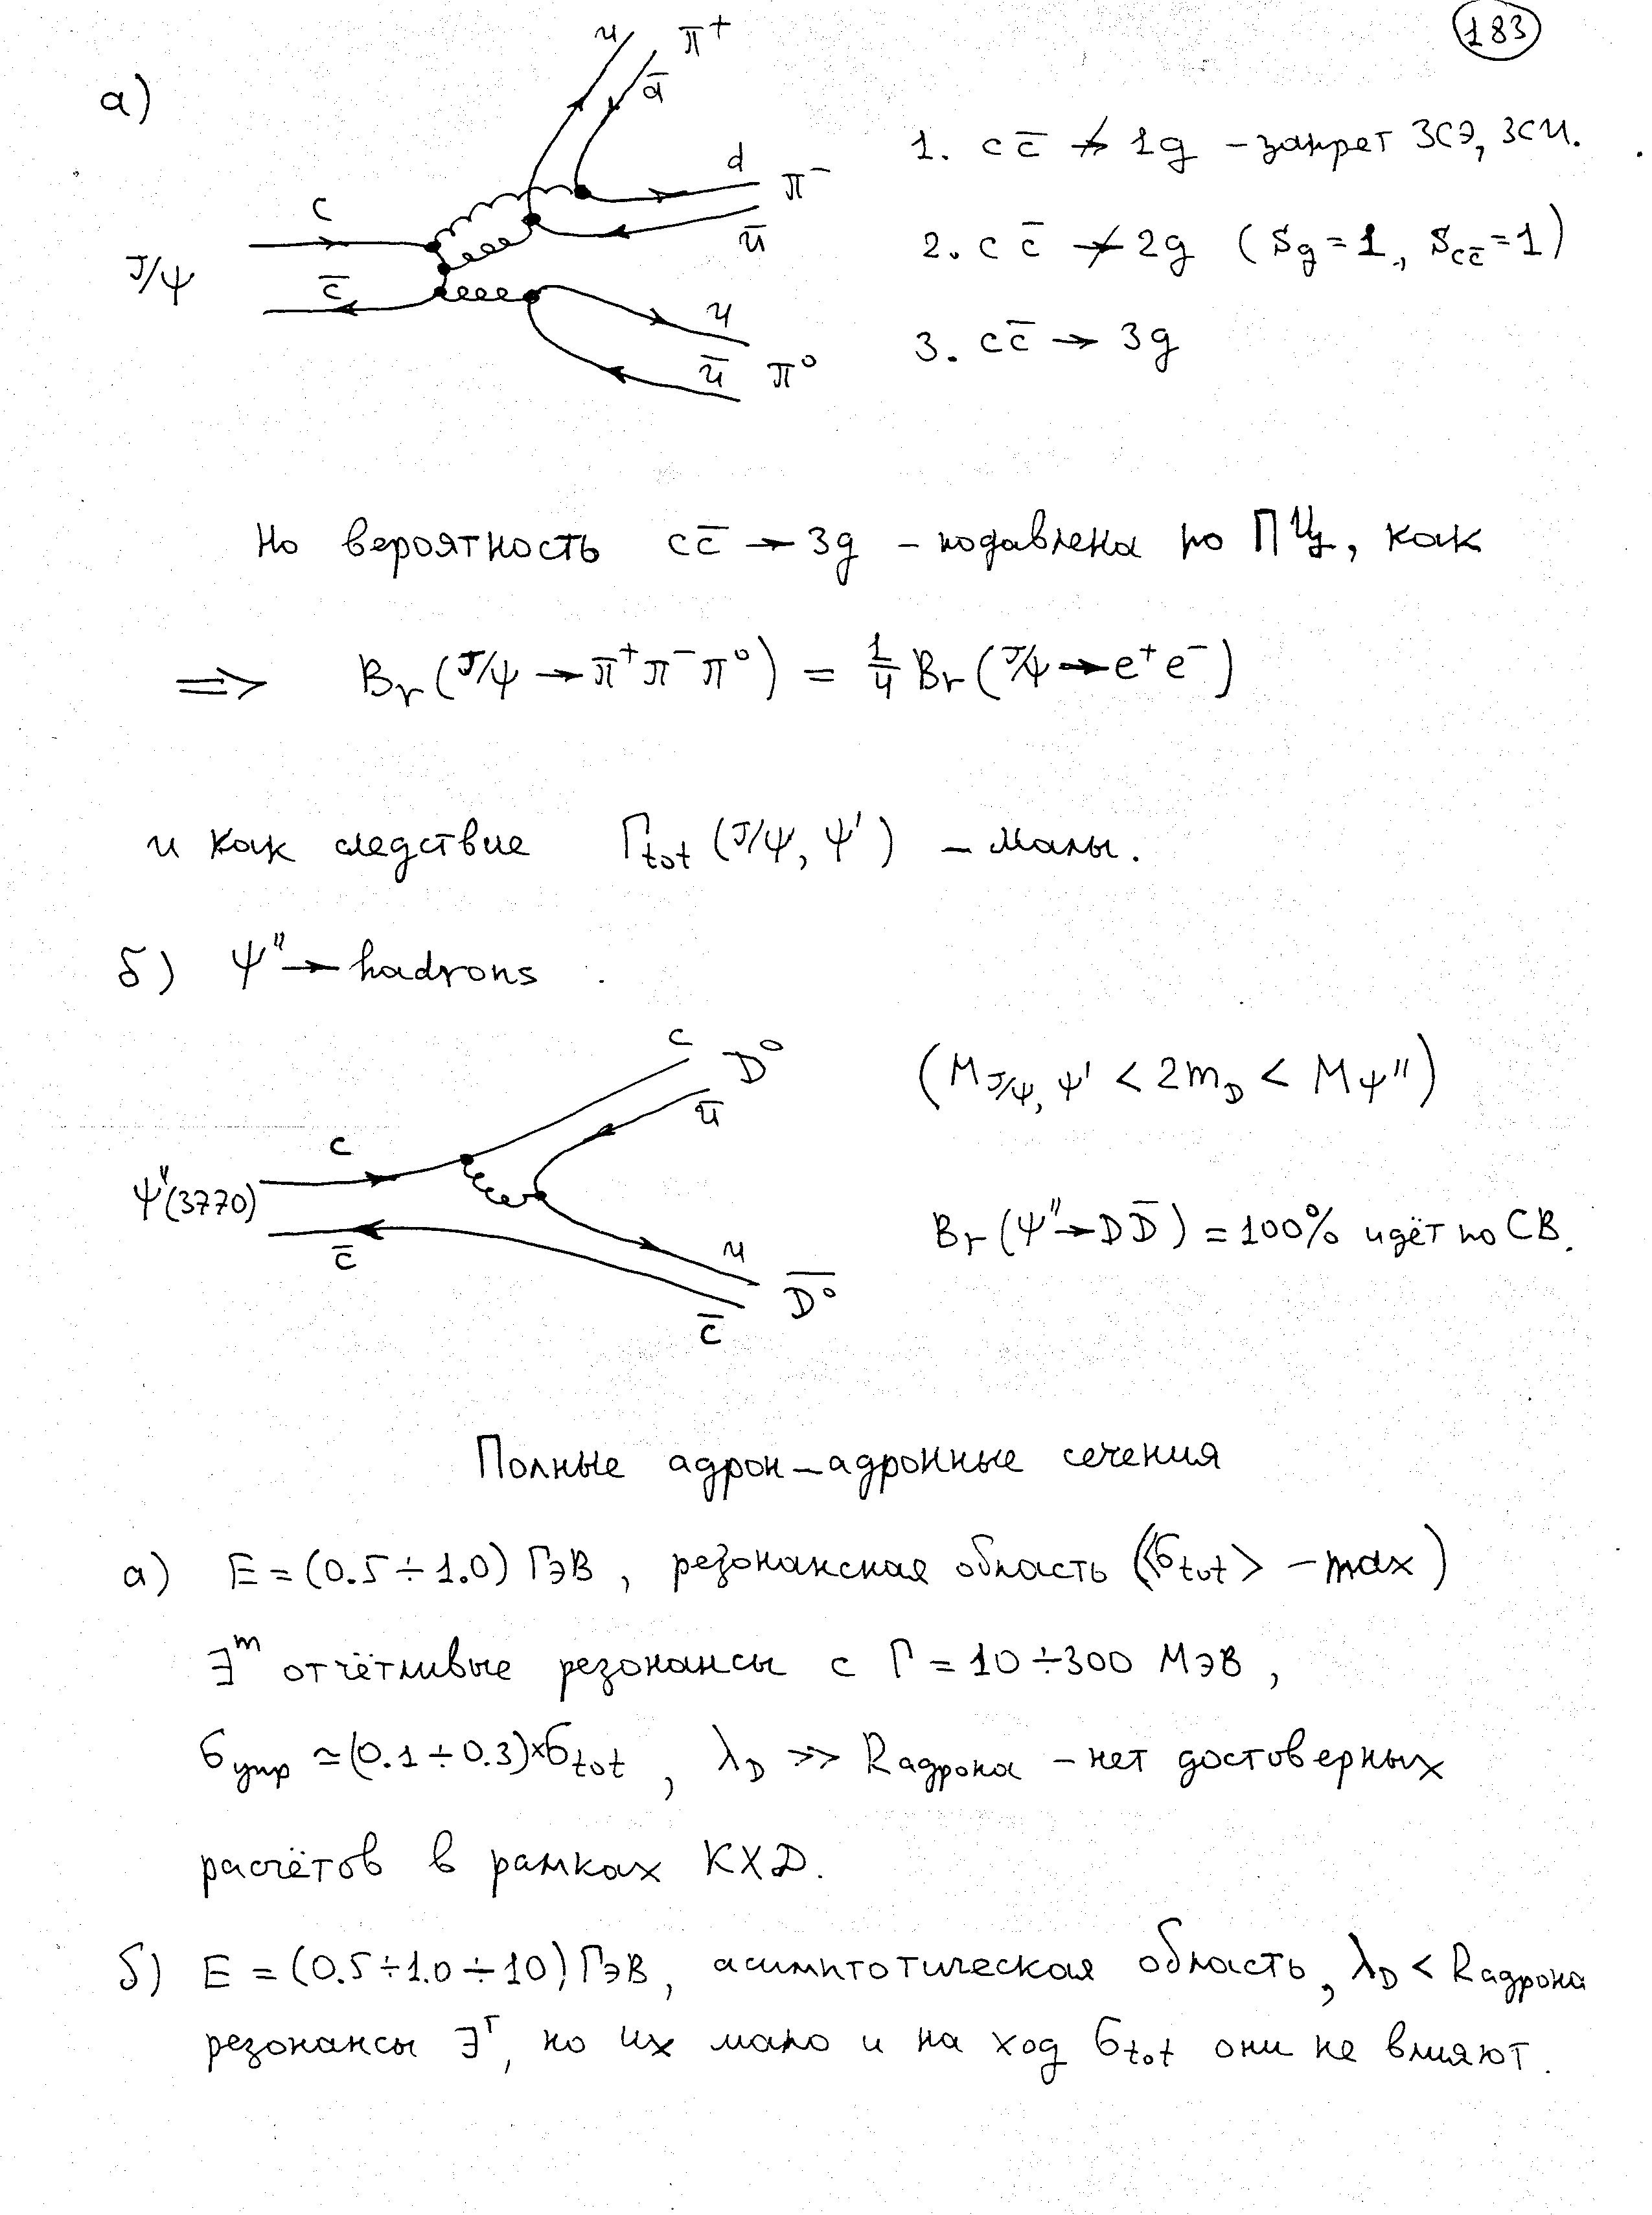 183
а)
u π⁺
d̄
1. c c̄ ↛ 1g – запрет ЗСЭ, ЗСИ.
d π⁻
c
ū
2. c c̄ ↛ 2g (S_g = 1, S_cc̄ = 1)
J/ψ
c̄
u
3. c c̄ → 3g
ū π⁰
Но вероятность c c̄ → 3g – подавлена по ПЦ, как
⟹ Br (J/ψ → π⁺ π⁻ π⁰) = 1/4 Br (J/ψ → e⁺ e⁻)
и как следствие Γ_tot (J/ψ, ψ') – малы.
б) ψ'' → hadrons
c D⁰
(M_J/ψ, ψ' < 2m_D < M_ψ'')
ū
c
ψ''(3770)
Br (ψ'' → D D̄) = 100% идёт по СВ.
c̄
u D̄⁰
c̄
Полные адрон – адронные сечения
а) E = (0.5 ÷ 1.0) ГэВ, резонансная область (<σ_tot> – max)
∃ᵐ отчётливые резонансы с Γ = 10 ÷ 300 МэВ,
σ_упр ≃ (0.1 ÷ 0.3) × σ_tot, λ_D >> R_адрона – нет достоверных
расчётов в рамках КХД.
б) E = (0.5 ÷ 1.0 ÷ 10) ГэВ, асимптотическая область, λ_D < R_адрона
резонансы ∃ᵀ, но их мало и на ход σ_tot они не влияют.